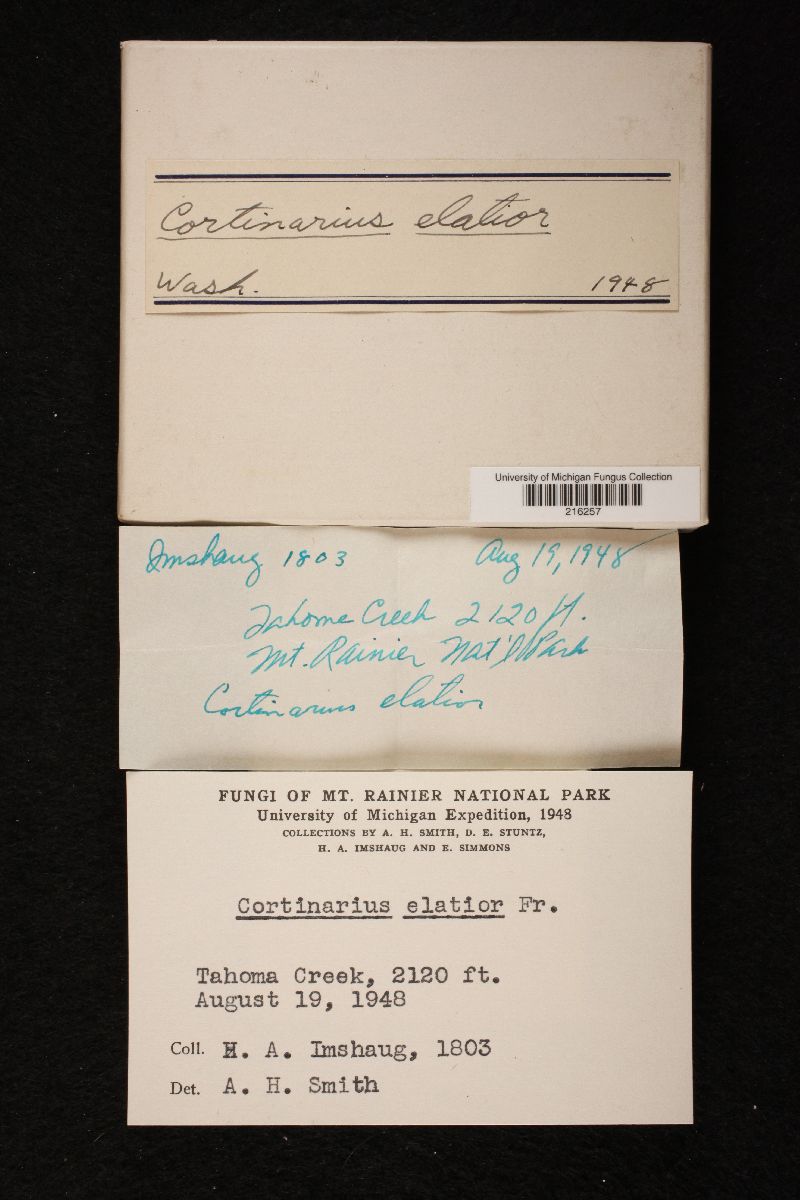 Cortinarius elatior
Wash. 1948
University of Michigan Fungus Collection
216257
Imshaug 1803 Aug 19, 1948
Tahoma Creek 2120 ft.
Mt. Rainier Nat'l Park
Cortinarius elatior
FUNGI OF MT. RAINIER NATIONAL PARK
University of Michigan Expedition, 1948
COLLECTIONS BY A. H. SMITH, D. E. STUNTZ,
H. A. IMSHAUG AND E. SIMMONS
Cortinarius elatior Fr.
Tahoma Creek, 2120 ft.
August 19, 1948
Coll. H. A. Imshaug, 1803
Det. A. H. Smith